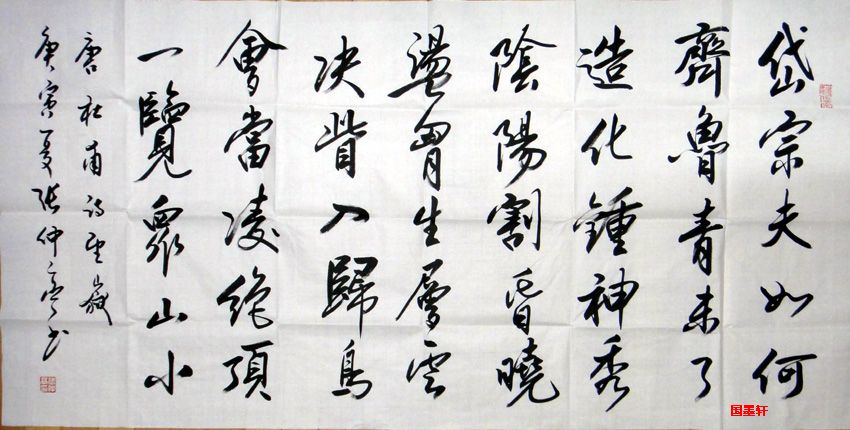 岱宗夫如何
齊魯青未了
造化鍾神秀
陰陽割昏曉
盪胷生層云
决眥入歸鳥
會當凌絕頂
一覽眾山小
唐杜甫诗望嶽
庚寅夏张仲亭书
国墨轩